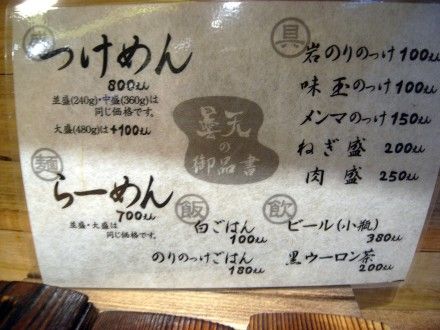 つけめん
800えん
並盛(240g)・中盛(360g)は
同じ価格です。
大盛(480g)は+100えん
麺
らーめん
700えん
並盛・大盛は
同じ価格です。
の
御品書
具
岩のりのっけ 100えん
味玉のっけ 100えん
メンマのっけ 150えん
ねぎ盛 200えん
肉盛 250えん
飯
白ごはん
100えん
のりのっけごはん
180えん
飲
ビール(小瓶)
380えん
黒ウーロン茶
200えん